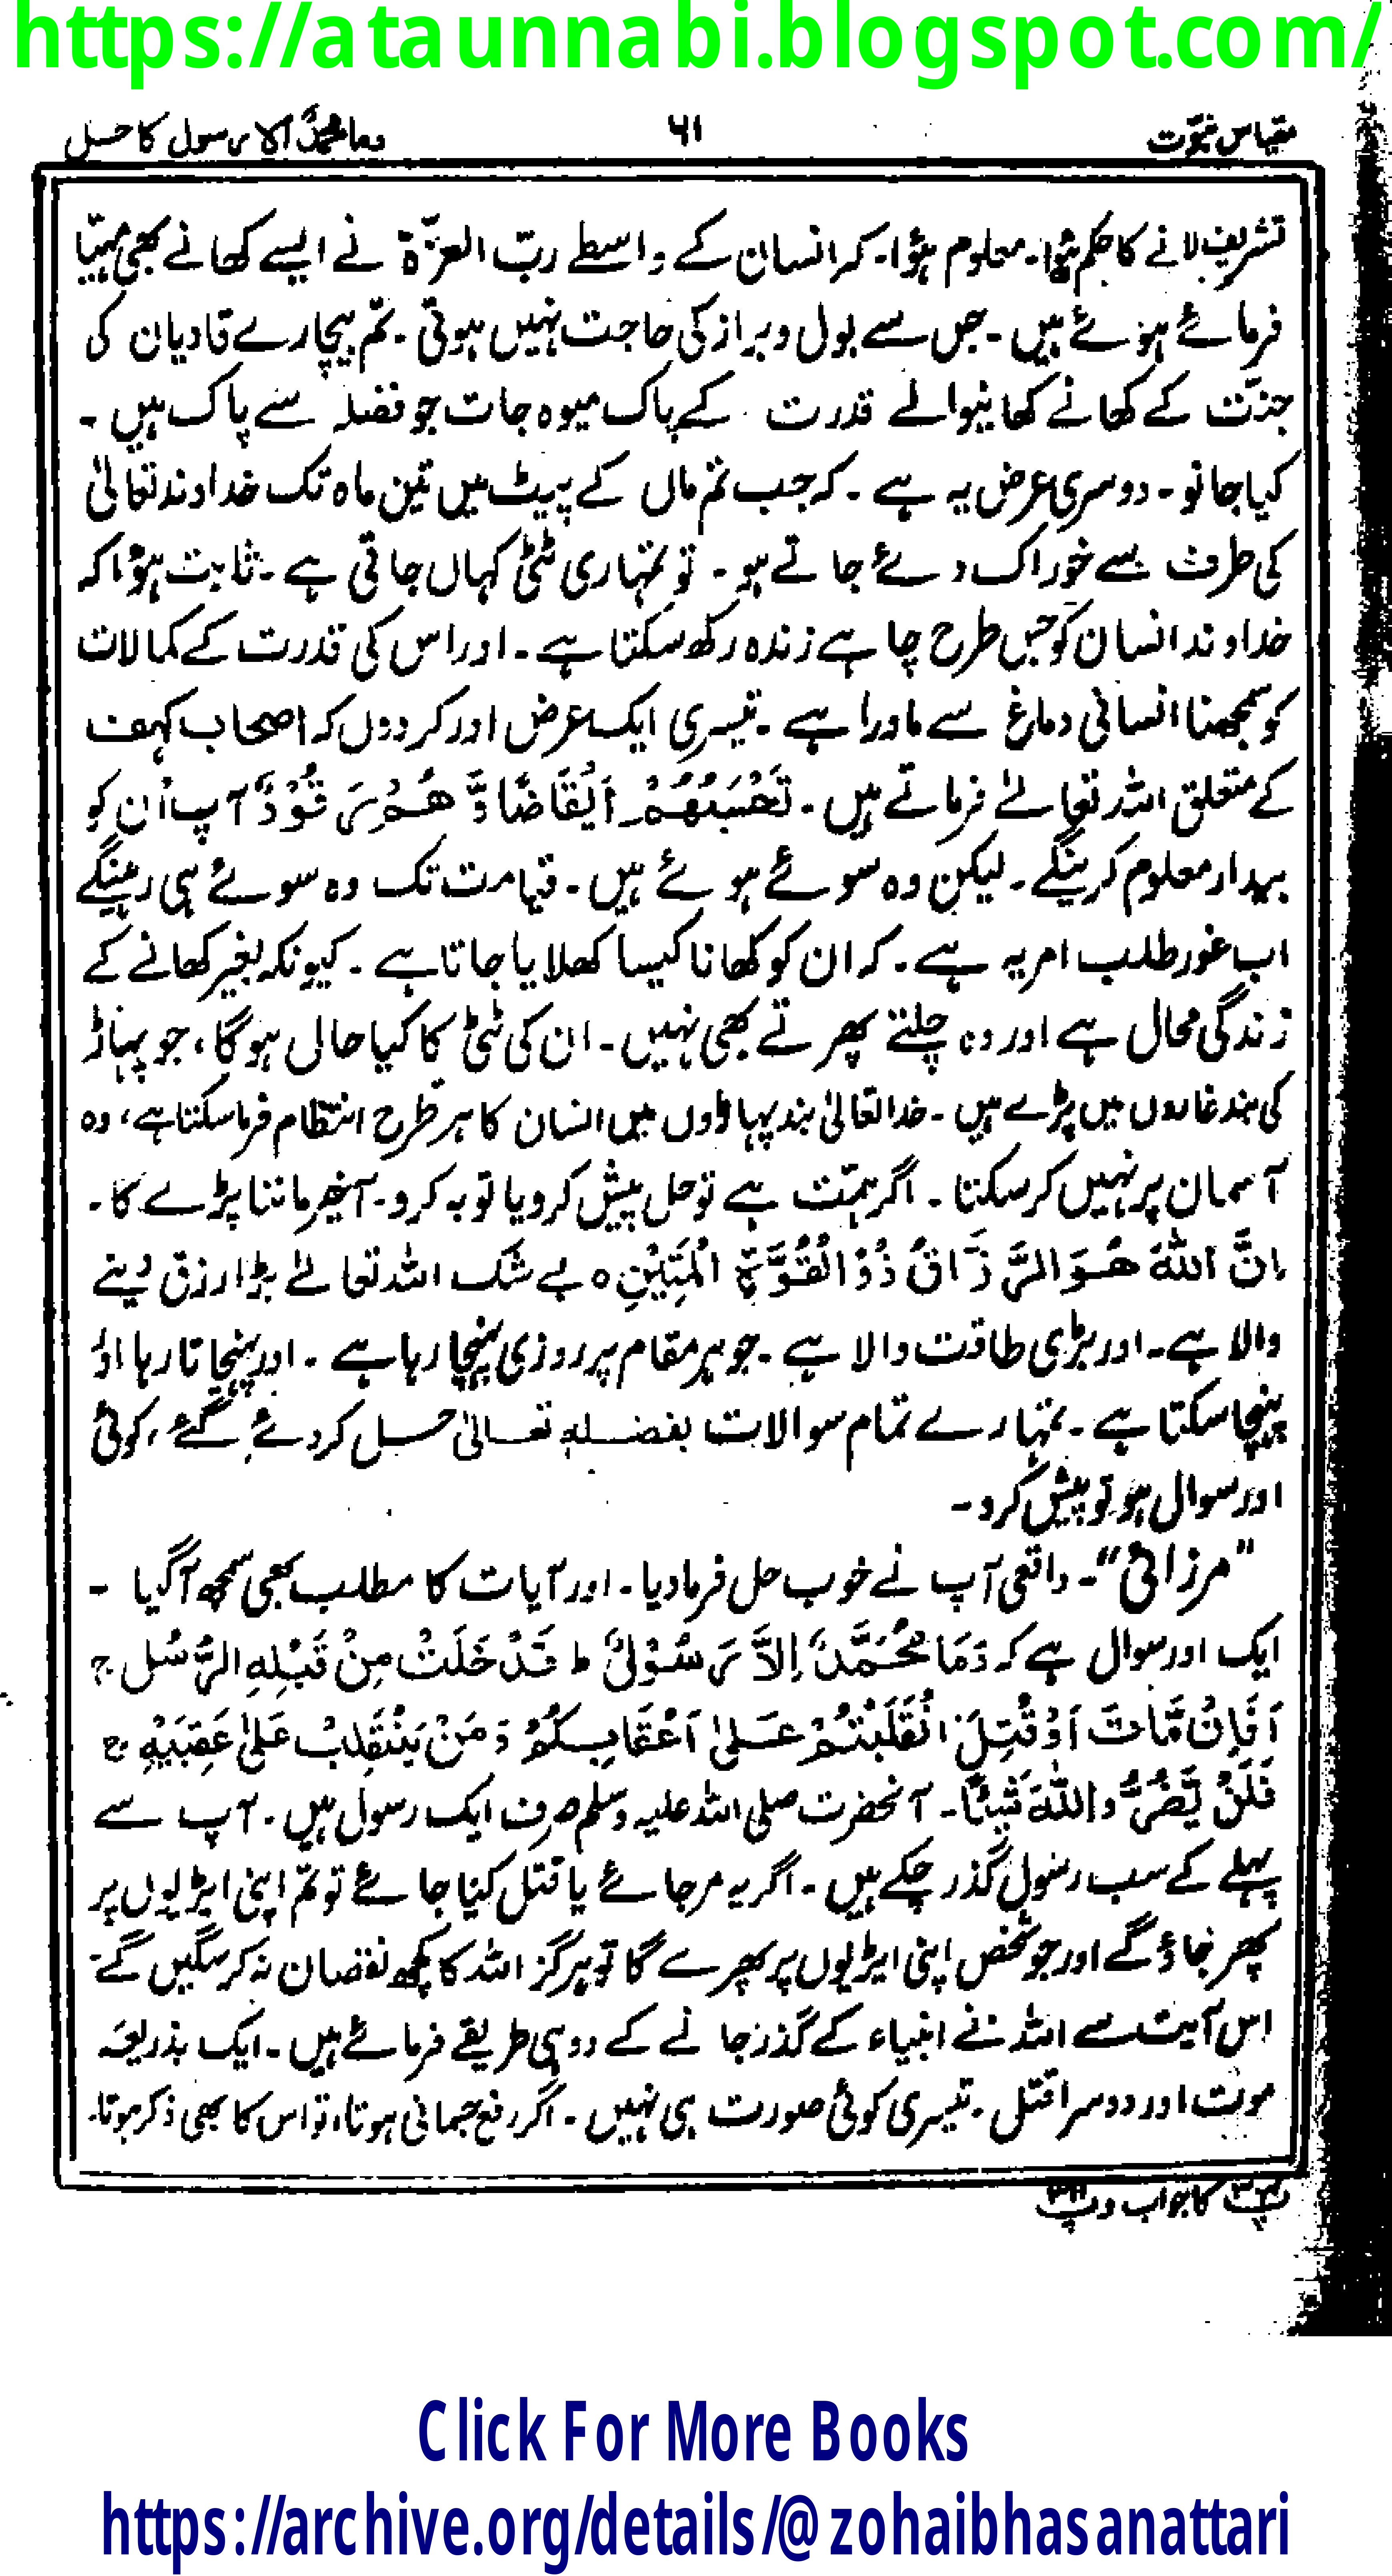 https://ataunnabi.blogspot.com/
مقیاس نبوّت ۶۱ وما محمدٌ الا رسول کا حل
تشریف لانے کا حکم ہؤا۔ معلوم ہؤا۔ کہ انسان کے واسطے ربّ العزّۃ نے ایسے کھانے بھی مہیّا
فرمائے ہوئے ہیں ۔ جس سے بول و براز کی حاجت نہیں ہوتی ۔ تم بیچارے قادیان کی
جنّت کے کھانے کھانیوالے قدرت کے پاک میوہ جات جو فضلہ سے پاک ہیں ۔
کیا جانو ۔ دوسری عرض یہ ہے ۔ کہ جب تم ماں کے پیٹ میں تین ماہ تک خداوند تعالیٰ
کی طرف سے خوراک دئے جاتے ہو ۔ تو تمہاری ٹٹی کہاں جاتی ہے ۔ ثابت ہؤا کہ
خداوند انسان کو جس طرح چاہے زندہ رکھ سکتا ہے ۔ اور اس کی قدرت کے کمالات
کو سمجھنا انسانی دماغ سے ماورا ہے ۔ تیسری ایک عرض اور کر دوں کہ اصحاب کہف
کے متعلق اللہ تعالےٰ فرماتے ہیں ۔ تَحْسَبُهُمْ اَيْقَاضًا وَّ هُمْ رُقُوْدٌ آپ اُن کو
بیدار معلوم کرینگے ۔ لیکن وہ سوئے ہوئے ہیں ۔ قیامت تک وہ سوئے ہی رہینگے
اب غور طلب امر یہ ہے ۔ کہ ان کو کھانا کیسا کھلایا جاتا ہے ۔ کیونکہ بغیر کھانے کے
زندگی محال ہے اور وہ چلتے پھرتے بھی نہیں ۔ ان کی ٹٹی کا کیا حال ہوگا ، جو پہاڑ
کی بند غاروں میں پڑے ہیں ۔ خدا تعالیٰ بند پہاڑوں میں انسان کا ہر طرح انتظام فرما سکتا ہے ، وہ
آسمان پر نہیں کر سکتا ۔ اگر ہمّت ہے تو حل پیش کرو یا توبہ کرو ۔ آخر ماننا پڑے گا ۔
اِنَّ اللهَ هُوَ الرَّزَّاقُ ذُوْ الْقُوَّةِ الْمَتِيْنِ ہ بے شک اللہ تعالےٰ بڑا رزق دینے
والا ہے ۔ اور بڑی طاقت والا ہے ۔ جو ہر مقام پر روزی پہنچا رہا ہے ۔ اور پہنچاتا رہا اور
پہنچا سکتا ہے ۔ تمہارے تمام سوالات بفضلہٖ تعالیٰ حل کر دئے گئے ، کوئی
اور سوال ہو تو پیش کرو ۔
"مرزائی" ۔ واقعی آپ نے خوب حل فرما دیا ۔ اور آیات کا مطلب بھی سمجھ آگیا ۔
ایک اور سوال ہے کہ وَمَا مُحَمَّدٌ اِلاَّ رَسُوْلٌ ط قَدْ خَلَتْ مِنْ قَبْلِهِ الرُّسُل ج
اَفَاِنْ مَّاتَ اَوْ قُتِلَ انْقَلَبْتُمْ عَلىٰ اَعْقَابِكُمْ وَمَنْ يَنْقَلِبْ عَلىٰ عَقِبَيْهِ ج
فَلَنْ يَّضُرُّ واللهَ شَيْئًا ۔ آنحضرت صلی اللہ علیہ وسلم صرف ایک رسول ہیں ۔ آپ سے
پہلے کے سب رسول گذر چکے ہیں ۔ اگر یہ مر جائے یا قتل کیا جائے تو تم اپنی ایڑیوں پر
پھر جاؤ گے اور جو شخص اپنی ایڑیوں پر پھرے گا تو ہرگز اللہ کا کچھ نقصان نہ کر سکیں گے ۔
اس آیت سے اللہ نے انبیاء کے گذر جانے کے دو ہی طریقے فرمائے ہیں ۔ ایک بذریعہ
موت اور دوسرا قتل ۔ تیسری کوئی صورت ہی نہیں ۔ اگر رفع جسمانی ہوتا ، تو اس کا بھی ذکر ہوتا ۔
کا جواب
Click For More Books
https://archive.org/details/@zohaibhasanattari